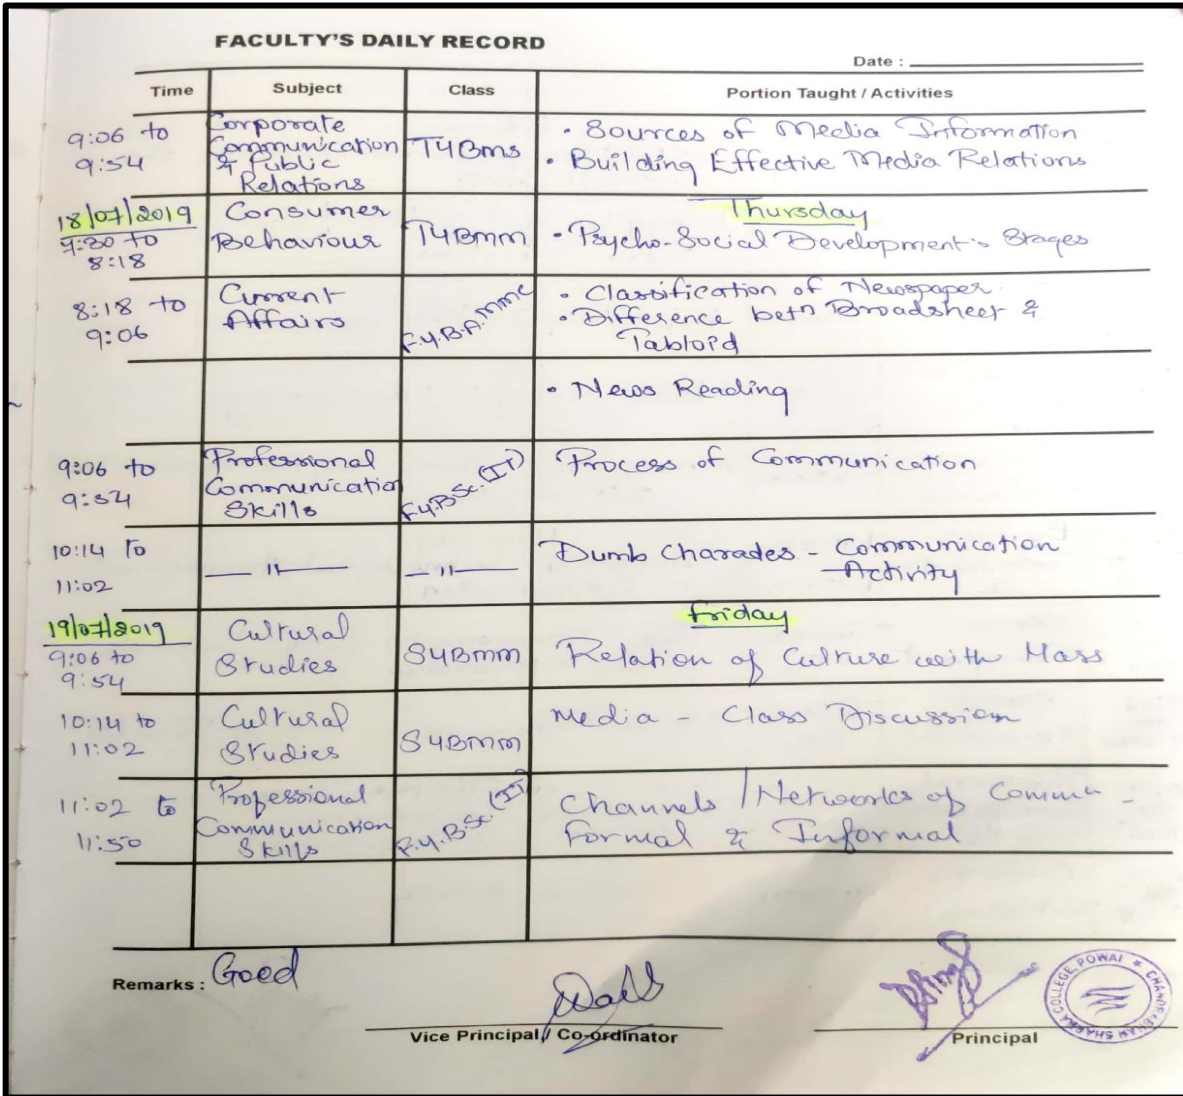 FACULTY'S DAILY RECORD
Date :
Time Subject Class Portion Taught / Activities
9:06 to 9:54
Corporate
Communication
& Public
Relations
TYBms
• Sources of Media Information
• Building Effective Media Relations
18/07/2019
Thursday
7:30 to
8:18
Consumer
Behaviour
TYBmm
• Psycho-Social Development's Stages
8:18 to
9:06
Current
Affairs
F.Y.B.A.MMC
• Classification of Newspaper
• Difference betn Broadsheet &
Tabloid
• News Reading
9:06 to
9:54
Professional
Communication
Skills
F.Y.B.Sc.(IT)
Process of Communication
10:14 To
11:02
— 11 —
— 11 —
Dumb Charades - Communication
Activity
19/07/2019
Friday
9:06 to
9:54
Cultural
Studies
SYBmm
Relation of Culture with Mass
10:14 to
11:02
Cultural
Studies
SYBmm
Media - Class Discussion
11:02 to
11:50
Professional
Communication
Skills
F.Y.B.Sc.(IT)
Channels / Networks of Commn -
Formal & Informal
Remarks : Good
Vice Principal / Co-ordinator
Principal
COLLEGE, POWAI * CHANDRABHAN SHARMA